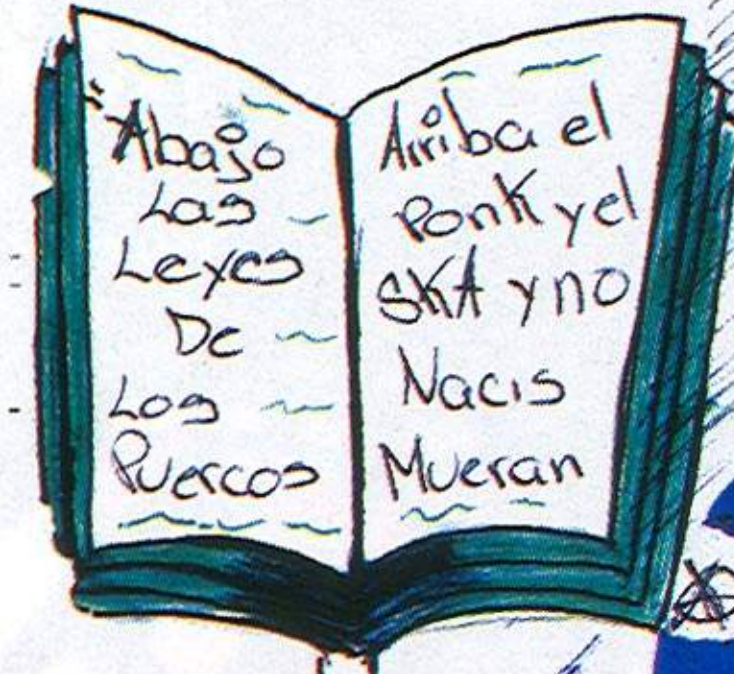 Abajo
Las
Leyes
De
Los
Puercos
Arriba el
Ponk y el
SKA y no
Nacis
Mueran